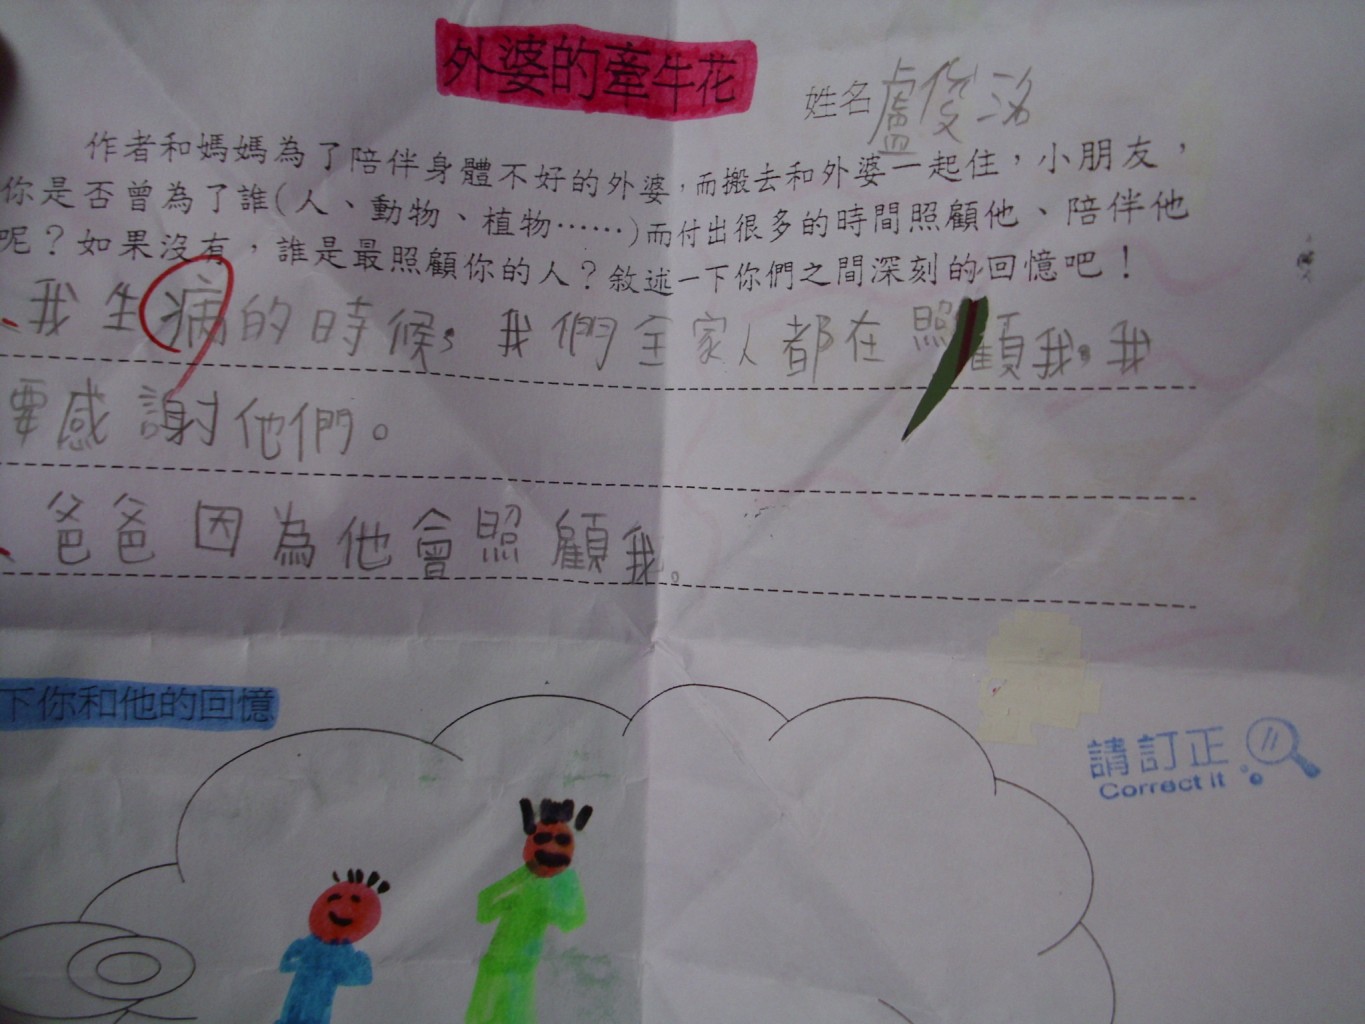 外婆的牽牛花
姓名盧俊
作者和媽媽為了陪伴身體不好的外婆，而搬去和外婆一起住，小朋友，
你是否曾為了誰(人、動物、植物……)而付出很多的時間照顧他、陪伴他
呢？如果沒有，誰是最照顧你的人？敘述一下你們之間深刻的回憶吧！
我生病的時候，我們全家人都在照顧我，我
要感謝他們。
爸爸因為他會照顧我。
下你和他的回憶
請訂正
Correct it